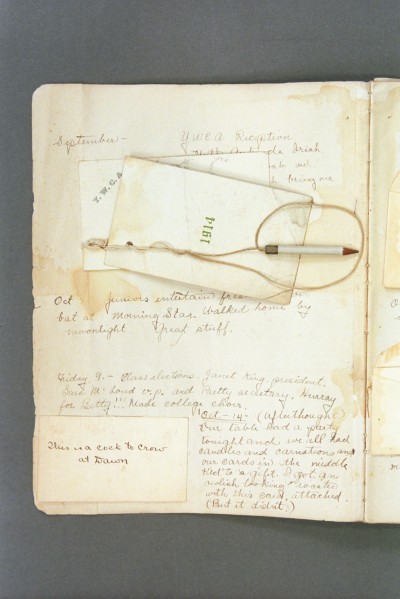 September -
YWCA Reception
Irish
me
Y.W.C.A.
1914
Oct Juniors entertain
bat at Morning Star. Walked home by
moonlight Great stuff.
Friday 9. - Class elections. Janet King, president,
v.p. and Betty secretary. Hurray
for Betty!!! Made college choir.
Oct - 14 - (Afterthought)
Our table had a party
tonight and we all had
candles and carnations and
our cards in the middle
tied to a gift. I got an
looking rooster
with this card attached.
(But it didn't)
This is a cock to crow
at Dawn